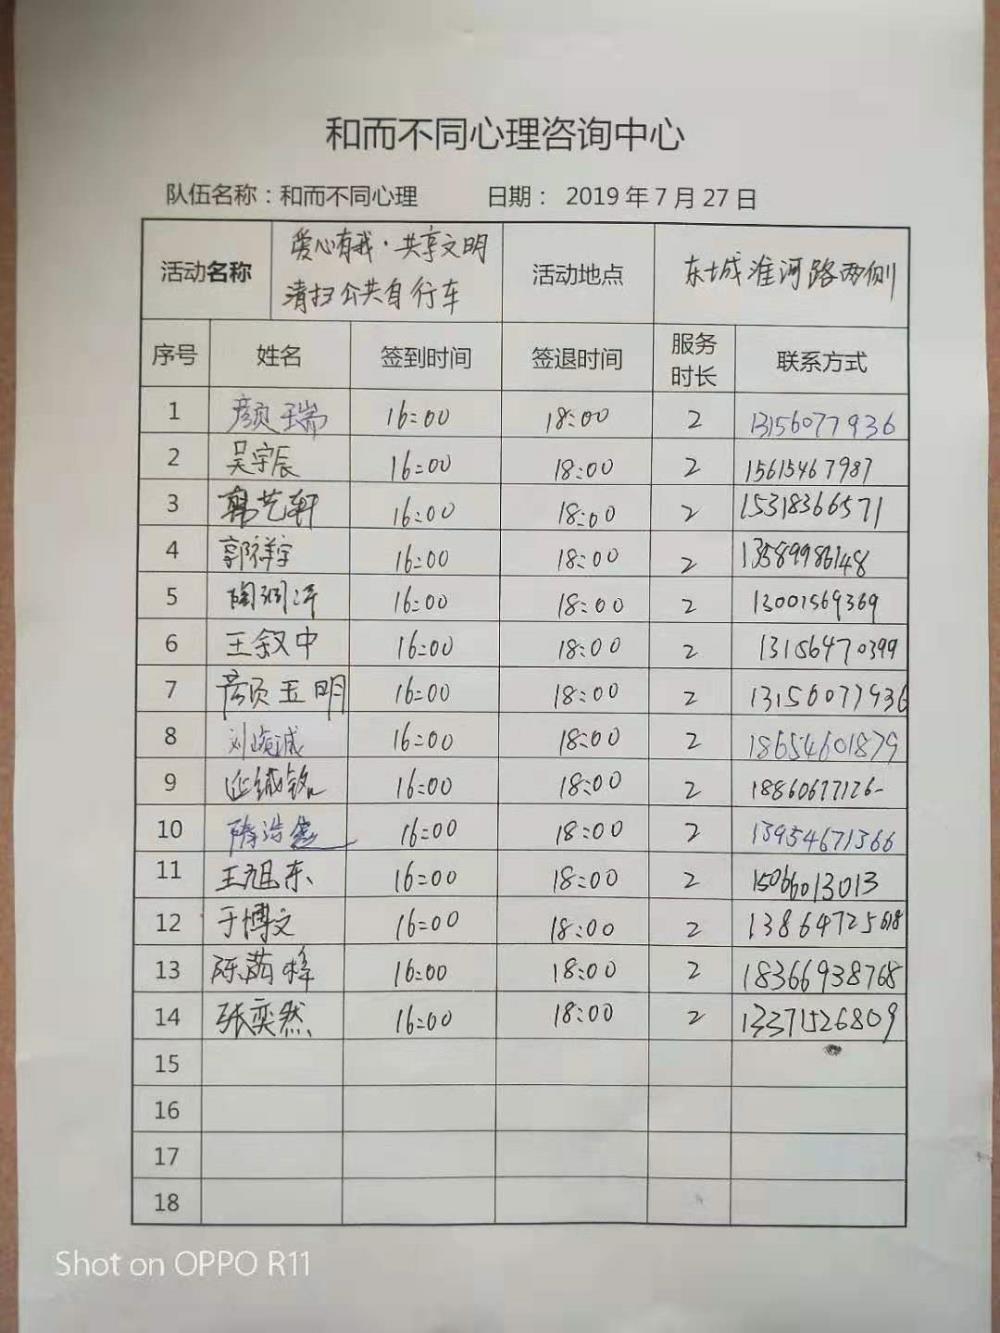 和而不同心理咨询中心
队伍名称：和而不同心理 日期： 2019 年 7 月 27 日
活动名称 爱心有我·共享文明 清扫公共自行车 活动地点 东城淮河路两侧
序号 姓名 签到时间 签退时间 服务时长 联系方式
1 颜瑞 16:00 18:00 2 13156077936
2 吴宇辰 16:00 18:00 2 15615467987
3 韩艺轩 16:00 18:00 2 15318366571
4 郭祥宇 16:00 18:00 2 13589986148
5 陶润泽 16:00 18:00 2 13001569369
6 王叙中 16:00 18:00 2 13156470399
7 颜玉明 16:00 18:00 2 13156077936
8 刘 诚 16:00 18:00 2 18654601879
9 16:00 18:00 2
10 隋浩 16:00 18:00 2 13954671366
11 王旭东 16:00 18:00 2 15066013013
12 于博文 16:00 18:00 2 13864725618
13 陈茹梓 16:00 18:00 2 18366938768
14 张奕然 16:00 18:00 2 13371526809
15
16
17
18
Shot on OPPO R11